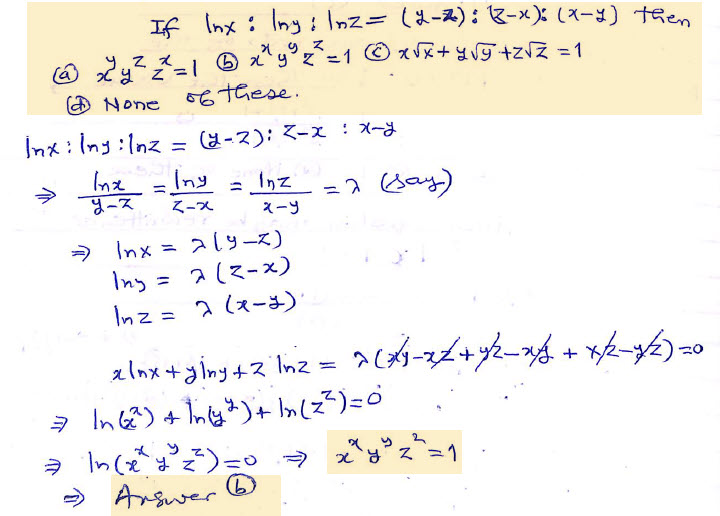 If lnx : lny : lnz = (y-z) : (z-x) : (x-y) then
(a) x^y y^z z^x = 1 (b) x^x y^y z^z = 1 (c) x√x + y√y + z√z = 1
(d) None of these.
lnx : lny : lnz = (y-z) : z-x : x-y
⇒ lnx/(y-z) = lny/(z-x) = lnz/(x-y) = λ (say)
⇒ lnx = λ(y-z)
lny = λ(z-x)
lnz = λ(x-y)
xlnx + ylny + z lnz = λ(xy-xz+yz-xy + xz-yz) = 0
⇒ ln(x^x) + ln(y^y) + ln(z^z) = 0
⇒ ln(x^x y^y z^z) = 0 ⇒ x^x y^y z^z = 1
⇒ Answer (b)